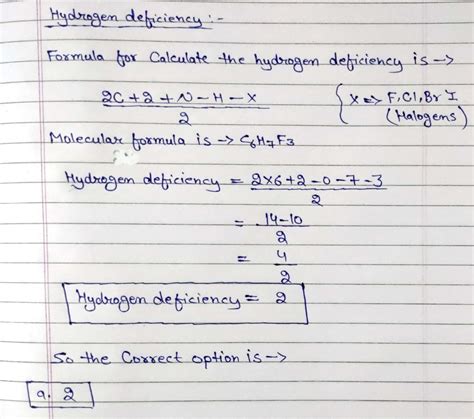 Hydrogen deficiency :-
Formula for Calculate the hydrogen deficiency is →
2C + 2 + N - H - X
2
X => F, Cl, Br I
(Halogens)
Molecular formula is → C6H7F3
Hydrogen deficiency = 2×6+2-0-7-3
2
= 14-10
2
= 4
2
Hydrogen deficiency = 2
So the Correct option is →
a. 2